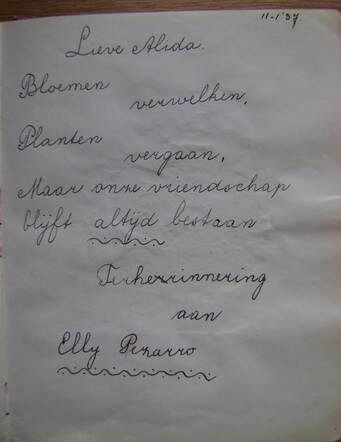 11-1'37.
Lieve Alida.
Bloemen
verwelken,
Planten
vergaan,
Maar onze vriendschap
blijft altijd bestaan
Terherrinnering
aan
Elly Pezarro